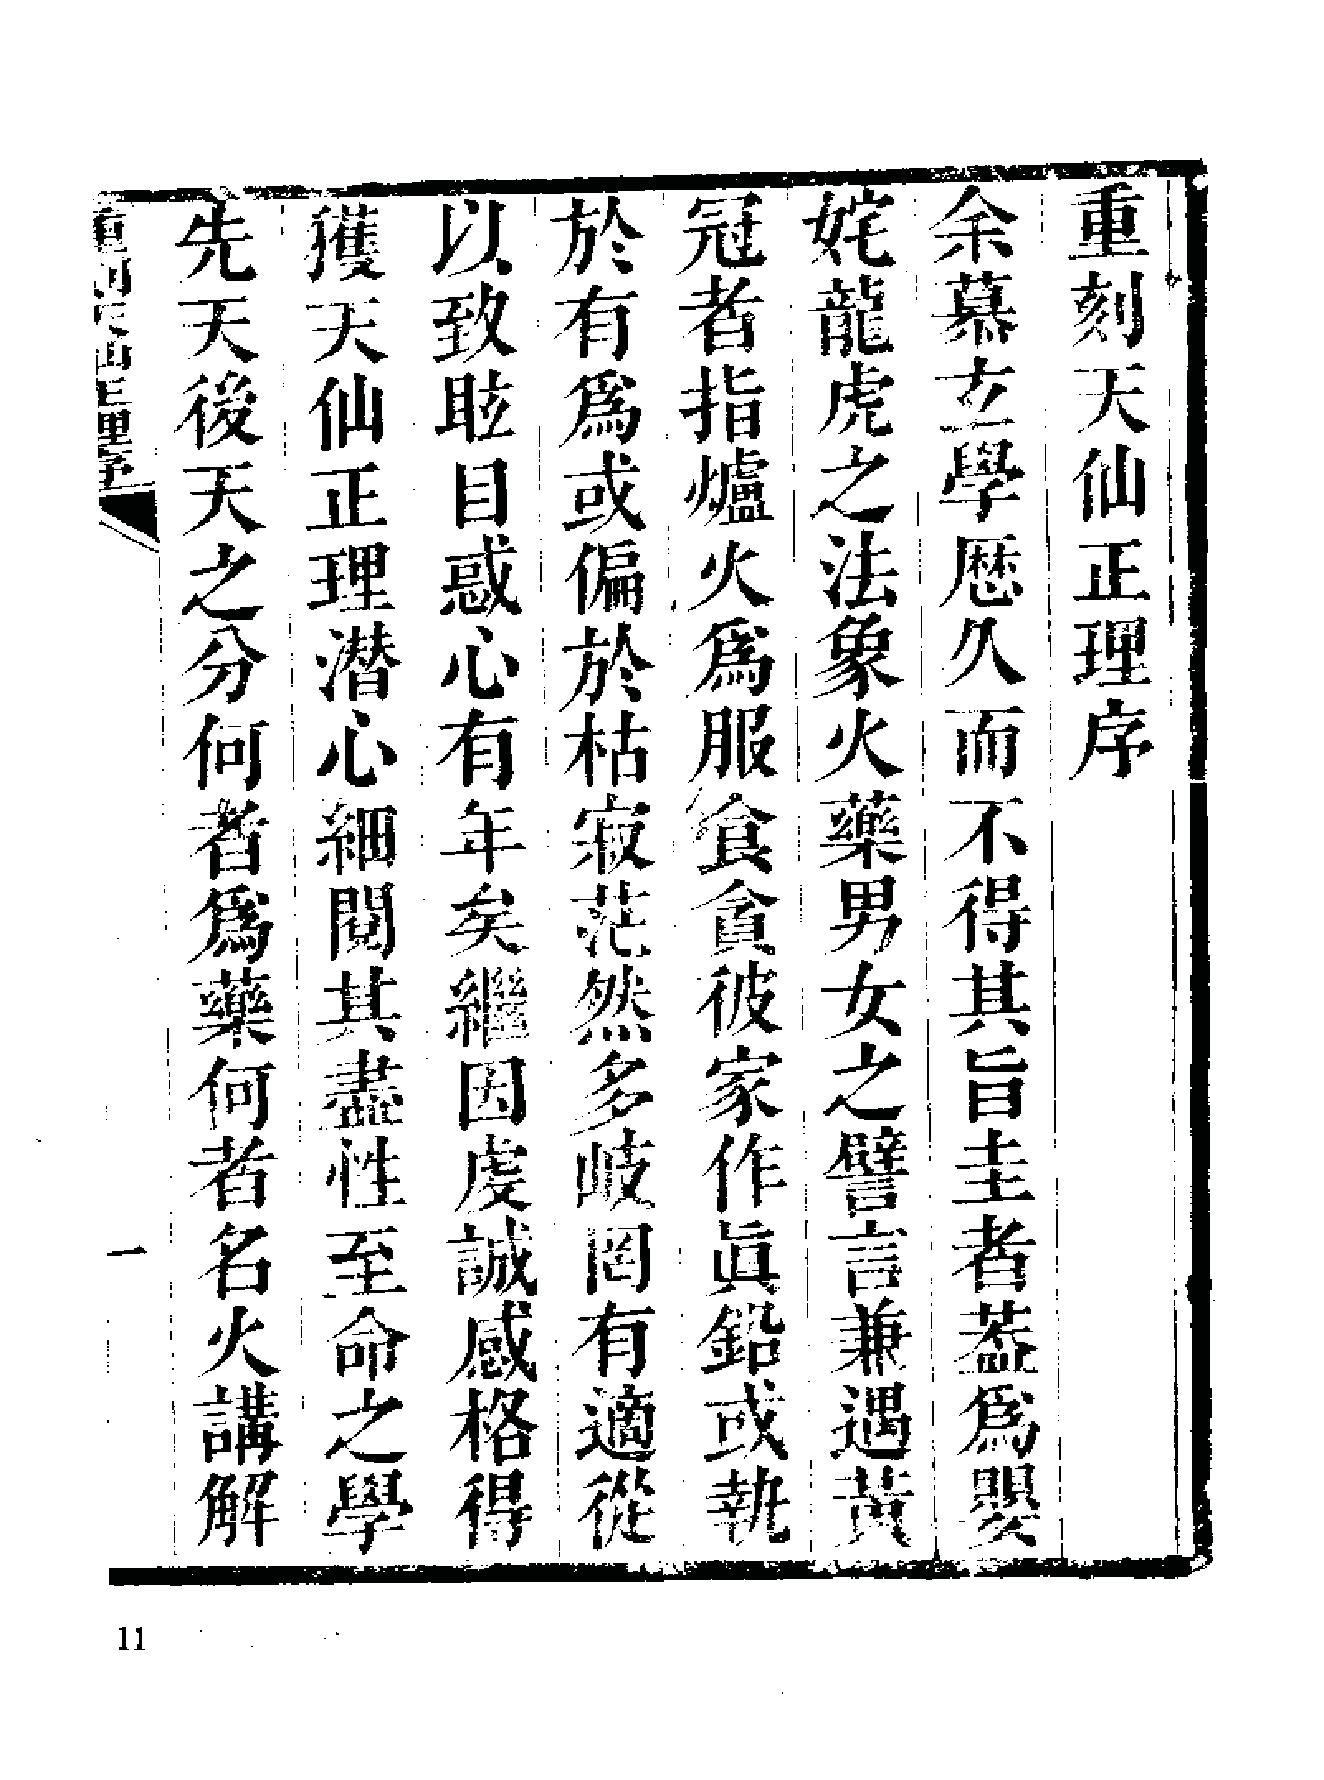 重刻天仙正理序
余慕玄學歷久而不得其旨圭者葢爲嬰
姹龍虎之法象火藥男女之譬言兼遇黃
冠者指爐火爲服食貪彼家作眞鉛或執
於有爲或偏於枯寂茫然多岐罔有適從
以致眩目惑心有年矣繼因虔誠感格得
獲天仙正理潜心細閱其盡性至命之學
先天後天之分何者爲藥何者名火講解
重刻天仙正理序
一
11